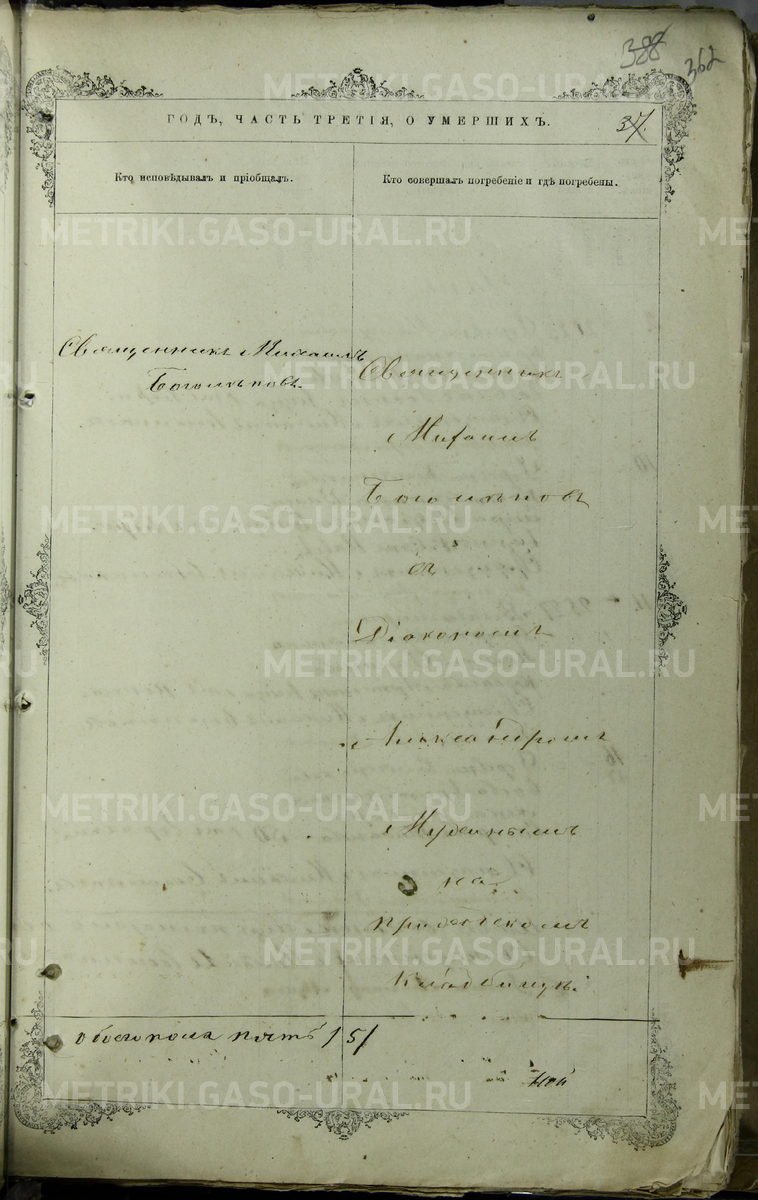 388
362
ГОДЪ, ЧАСТЬ ТРЕТІЯ, О УМЕРШИХЪ.
37.
Кто исповѣдывалъ и пріобщалъ.
Кто совершалъ погребеніе и гдѣ погребены.
METRIKI.GASO-URAL.RU
Священникъ Михаилъ
Боголѣповъ.
Священникъ
Михаилъ
Боголѣповъ
съ
Діакономъ
Александромъ
на
приходскомъ
Кладбищѣ.
обоего пола пять /5/